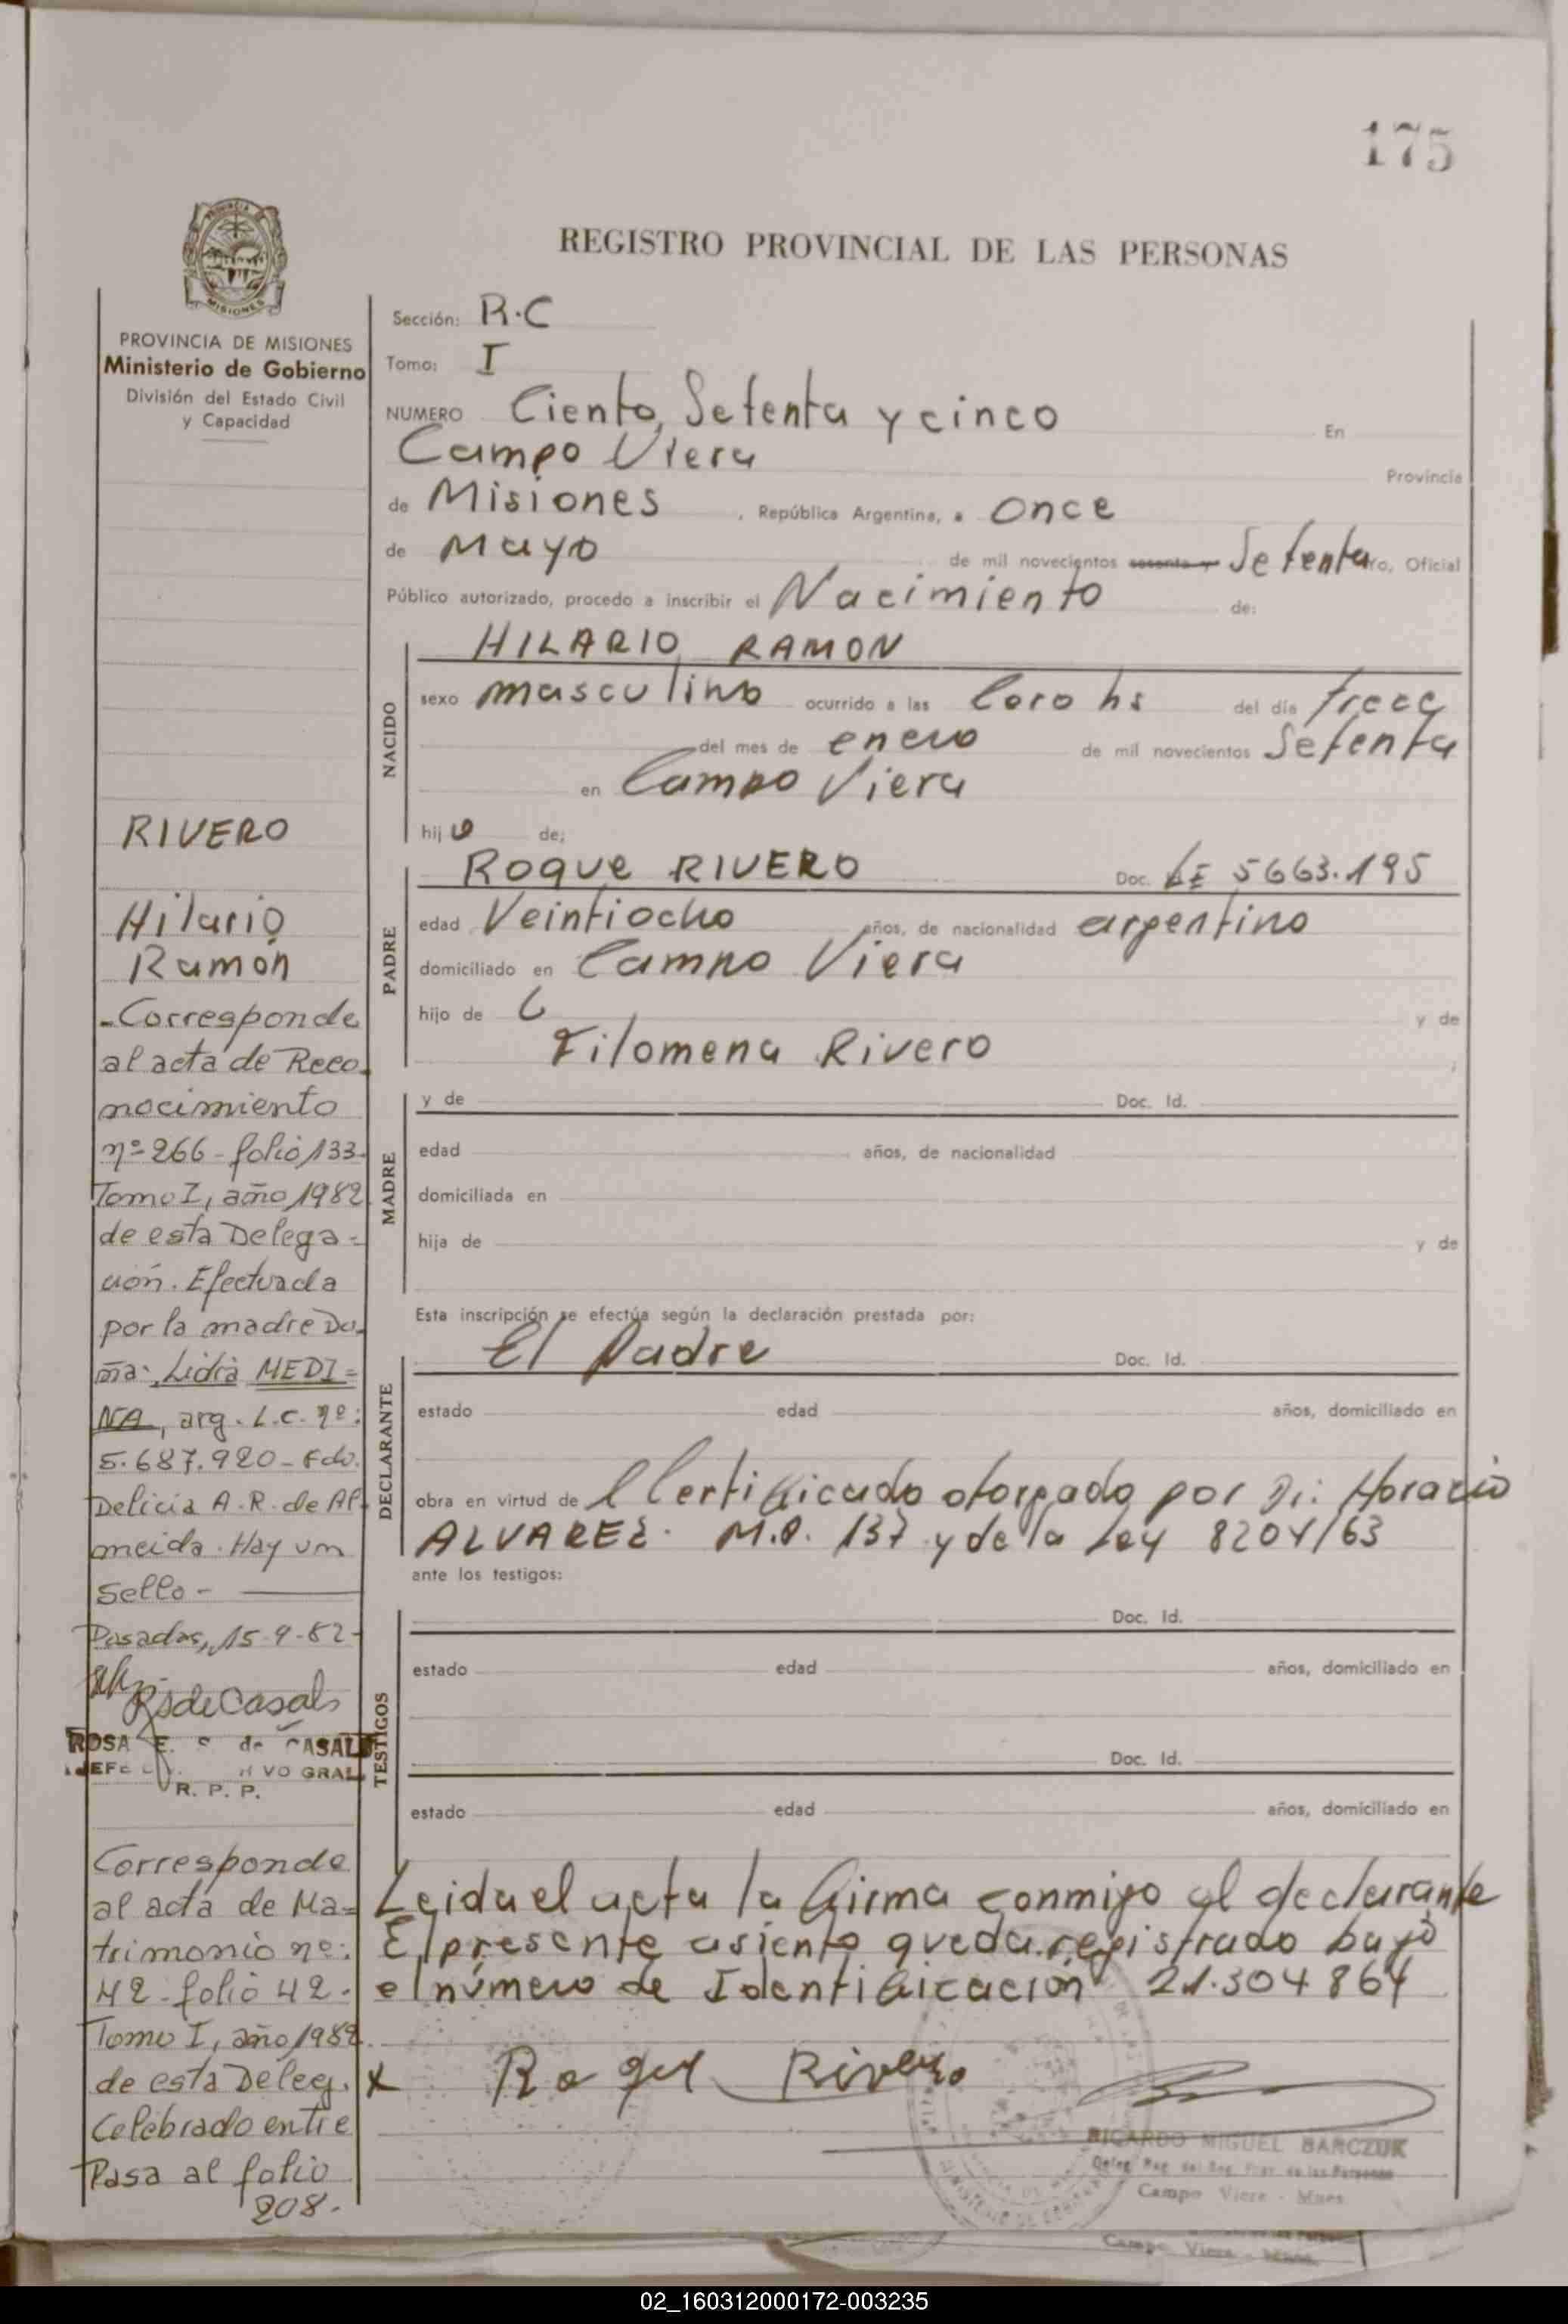 175
PROVINCIA DE MISIONES
REGISTRO PROVINCIAL DE LAS PERSONAS
PROVINCIA DE MISIONES
Ministerio de Gobierno
División del Estado Civil
y Capacidad
RIVERO
Hilario
Ramón
-Corresponde
al acta de Reco-
nocimiento
nº 266 - folio 133-
Tomo I, año 1982
de esta Delega-
ción. Efectuada
por la madre Do-
ña: Lidia MEDI=
NA, arg. L.C. nº:
5.687.920 - Fdo.
Delicia A.R. de Al-
meida. Hay un
sello -
Posadas, 15-9-82-
RSdeCasals
ROSA E. S. de CASALS
R. P. P.
Corresponde
al acta de Ma=
trimonio nº:
42 - folio 42 -
Tomo I, año 1982
de esta Deleg.
Celebrado entre
Pasa al folio
208.-
Sección: R.C
Tomo: I
NUMERO Ciento, Setenta y cinco En
Campo Viera Provincia
de Misiones, República Argentina, a Once
de Mayo de mil novecientos sesenta y Setenta ro, Oficial
Público autorizado, procedo a inscribir el Nacimiento de:
NACIDO
HILARIO RAMON
sexo masculino ocurrido a las Cero hs del día trece
del mes de enero de mil novecientos Setenta
en Campo Viera
hijo de;
PADRE
Roque RIVERO Doc. LE 5663.195
edad Veintiocho años, de nacionalidad argentino
domiciliado en Campo Viera
hijo de y de
Filomena Rivero ;
MADRE
y de Doc. Id.
edad años, de nacionalidad
domiciliada en
hija de y de
Esta inscripción se efectúa según la declaración prestada por:
DECLARANTE
El Padre Doc. Id.
estado edad años, domiciliado en
obra en virtud de l Certificado otorgado por Dr: Horacio
ALVAREZ. M.P. 137 y de la Ley 8204/63
ante los testigos:
TESTIGOS
Doc. Id.
estado edad años, domiciliado en
Doc. Id.
estado edad años, domiciliado en
Leida el acta la firma conmigo el declarante
El presente asiento queda registrado bajo
el número de Identificación 21.304864
x Roque Rivero
RICARDO MIGUEL BARCZUK
Deleg. Reg. del Reg. Prov. de las Personas
Campo Viera - Mnes.
Campo Viera - Mnes.
02_160312000172-003235